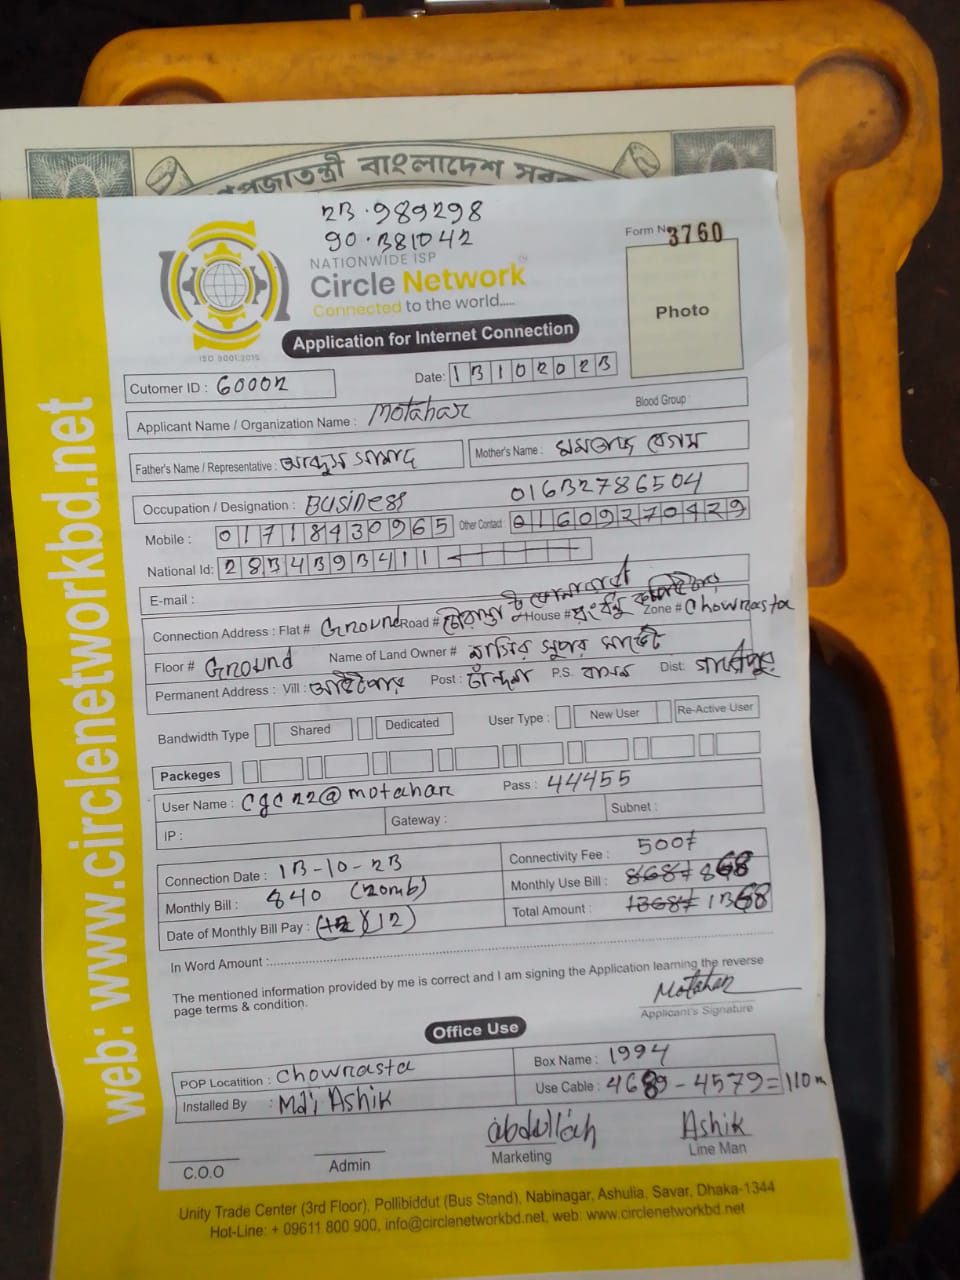 গণপ্রজাতন্ত্রী বাংলাদেশ সরকার
23.989298
90.381042
NATIONWIDE ISP
Circle Network
Connected to the world.....
ISO 9001:2015
Form No 3760
Photo
Application for Internet Connection
Cutomer ID : 60002 Date: 13102023
Applicant Name / Organization Name : Motahar Blood Group :
Father's Name / Representative : আব্দুস সামাদ Mother's Name : মমতাজ বেগম
Occupation / Designation : Business 01632786504
Mobile : 01718430965 Other Contact : 01609270429
National Id: 2834393411
E-mail :
Connection Address : Flat # Ground Road # House # Zone # Chowrasta
Floor # Ground Name of Land Owner # নাসির সুপার মার্কেট
Permanent Address : Vill : Post : চান্দনা P.S. বাসন Dist: গাজীপুর
Bandwidth Type Shared Dedicated User Type : New User Re-Active User
Packeges
User Name : cgc22@motahar Pass : 44455
IP : Gateway : Subnet :
Connection Date : 13-10-23 Connectivity Fee : 500/-
Monthly Bill : 840 (20mb) Monthly Use Bill : 868/- 868
Date of Monthly Bill Pay : (12) Total Amount : 1368/- 1368
In Word Amount :
The mentioned information provided by me is correct and I am signing the Application learning the reverse
page terms & condition.
Motahar
Applicant's Signature
Office Use
POP Locatition : Chowrasta Box Name : 1994
Installed By : Md: Ashik Use Cable : 4689 - 4579 = 110 m
abdullah Ashik
C.O.O Admin Marketing Line Man
Unity Trade Center (3rd Floor), Pollibiddut (Bus Stand), Nabinagar, Ashulia, Savar, Dhaka-1344
Hot-Line: + 09611 800 900, info@circlenetworkbd.net, web: www.circlenetworkbd.net
web: www.circlenetworkbd.net